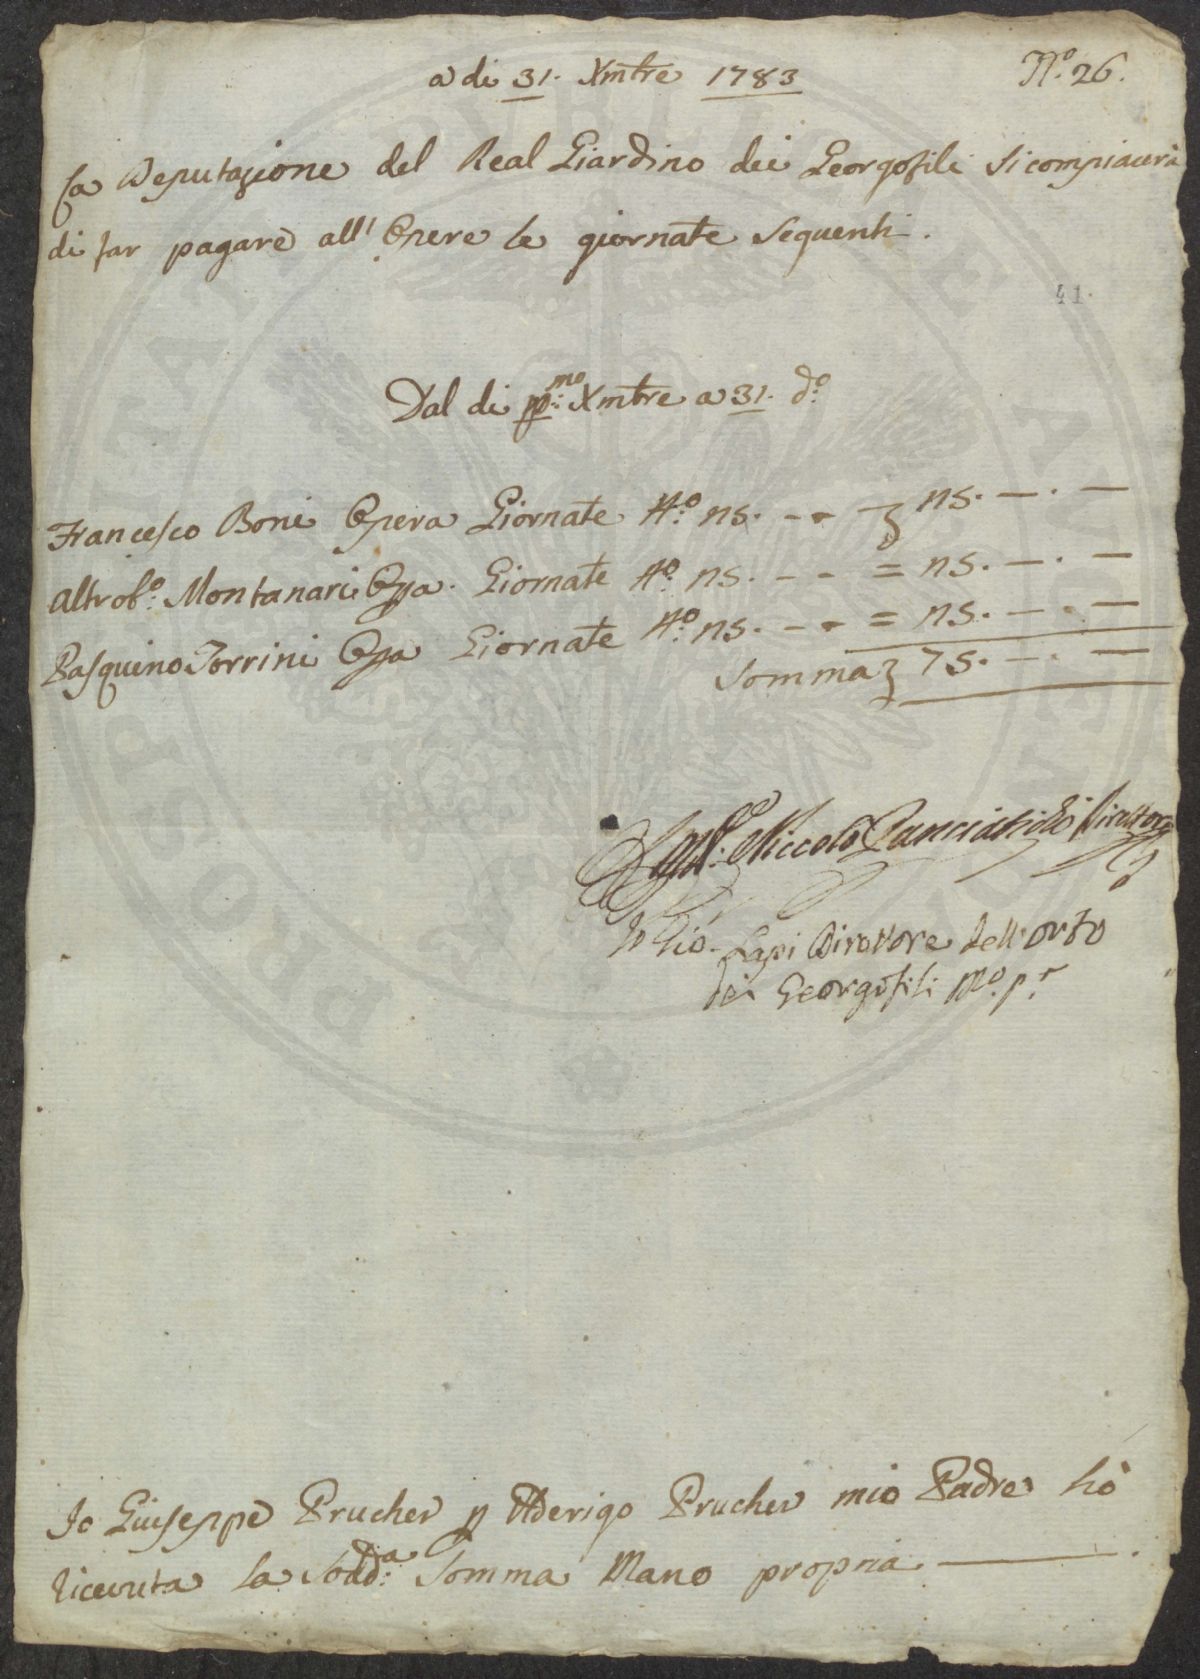 a di 31. Xmbre 1783
N.º 26.
La Deputazione del Real Giardino dei Georgofili si compiacerà
di far pagare all' Opere le giornate sequenti.
41.
Dal di p.mo Xmbre a 31. d.º
Francesco Boni Opera Giornate N.º 25. - - £ 25. — . —
Altrob.º Montanari Opa. Giornate N.º 25. - - = 25. — . —
Pasquino Torrini Opa Giornate N.º 25. - - = 25. — . —
Somma £ 75. — . —
Niccolò Panciatichi Direttore
Io Gio. Lapi Direttore dell'orto
dei Georgofili M.º p.r
Io Giuseppe Prucher p Federigo Prucher mio Padre hò
ricevuta la Sodd.a Somma Mano propria —
PUBLICAE
PROSPERITATI